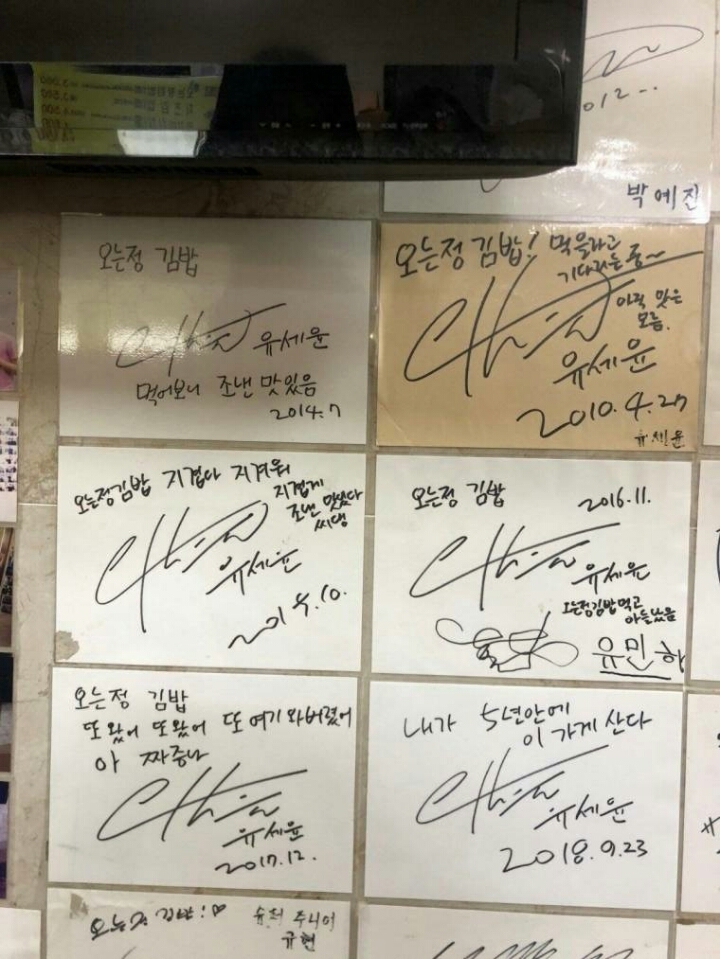 2012...
박예진
오는정 김밥
유세윤
먹어보니 조낸 맛있음
2014.7
오는정 김밥! 먹을라고
기다리는 중~
아직 맛은
모름.
유세윤
2010.4.27
유세윤
오는정김밥 지겹다 지겨워
지겹게
조낸 맛있다
씨댕
유세윤
오는정 김밥
2016.11.
유세윤
오는정김밥먹고
아들낳음
유민하
오는정 김밥
또 왔어 또 왔어 또 여기 와버렸어
아 짜증나
유세윤
2017.12.
내가 5년안에
이 가게 산다
유세윤
2018.9.23
오는정 김밥!♡
슈퍼 주니어
규현